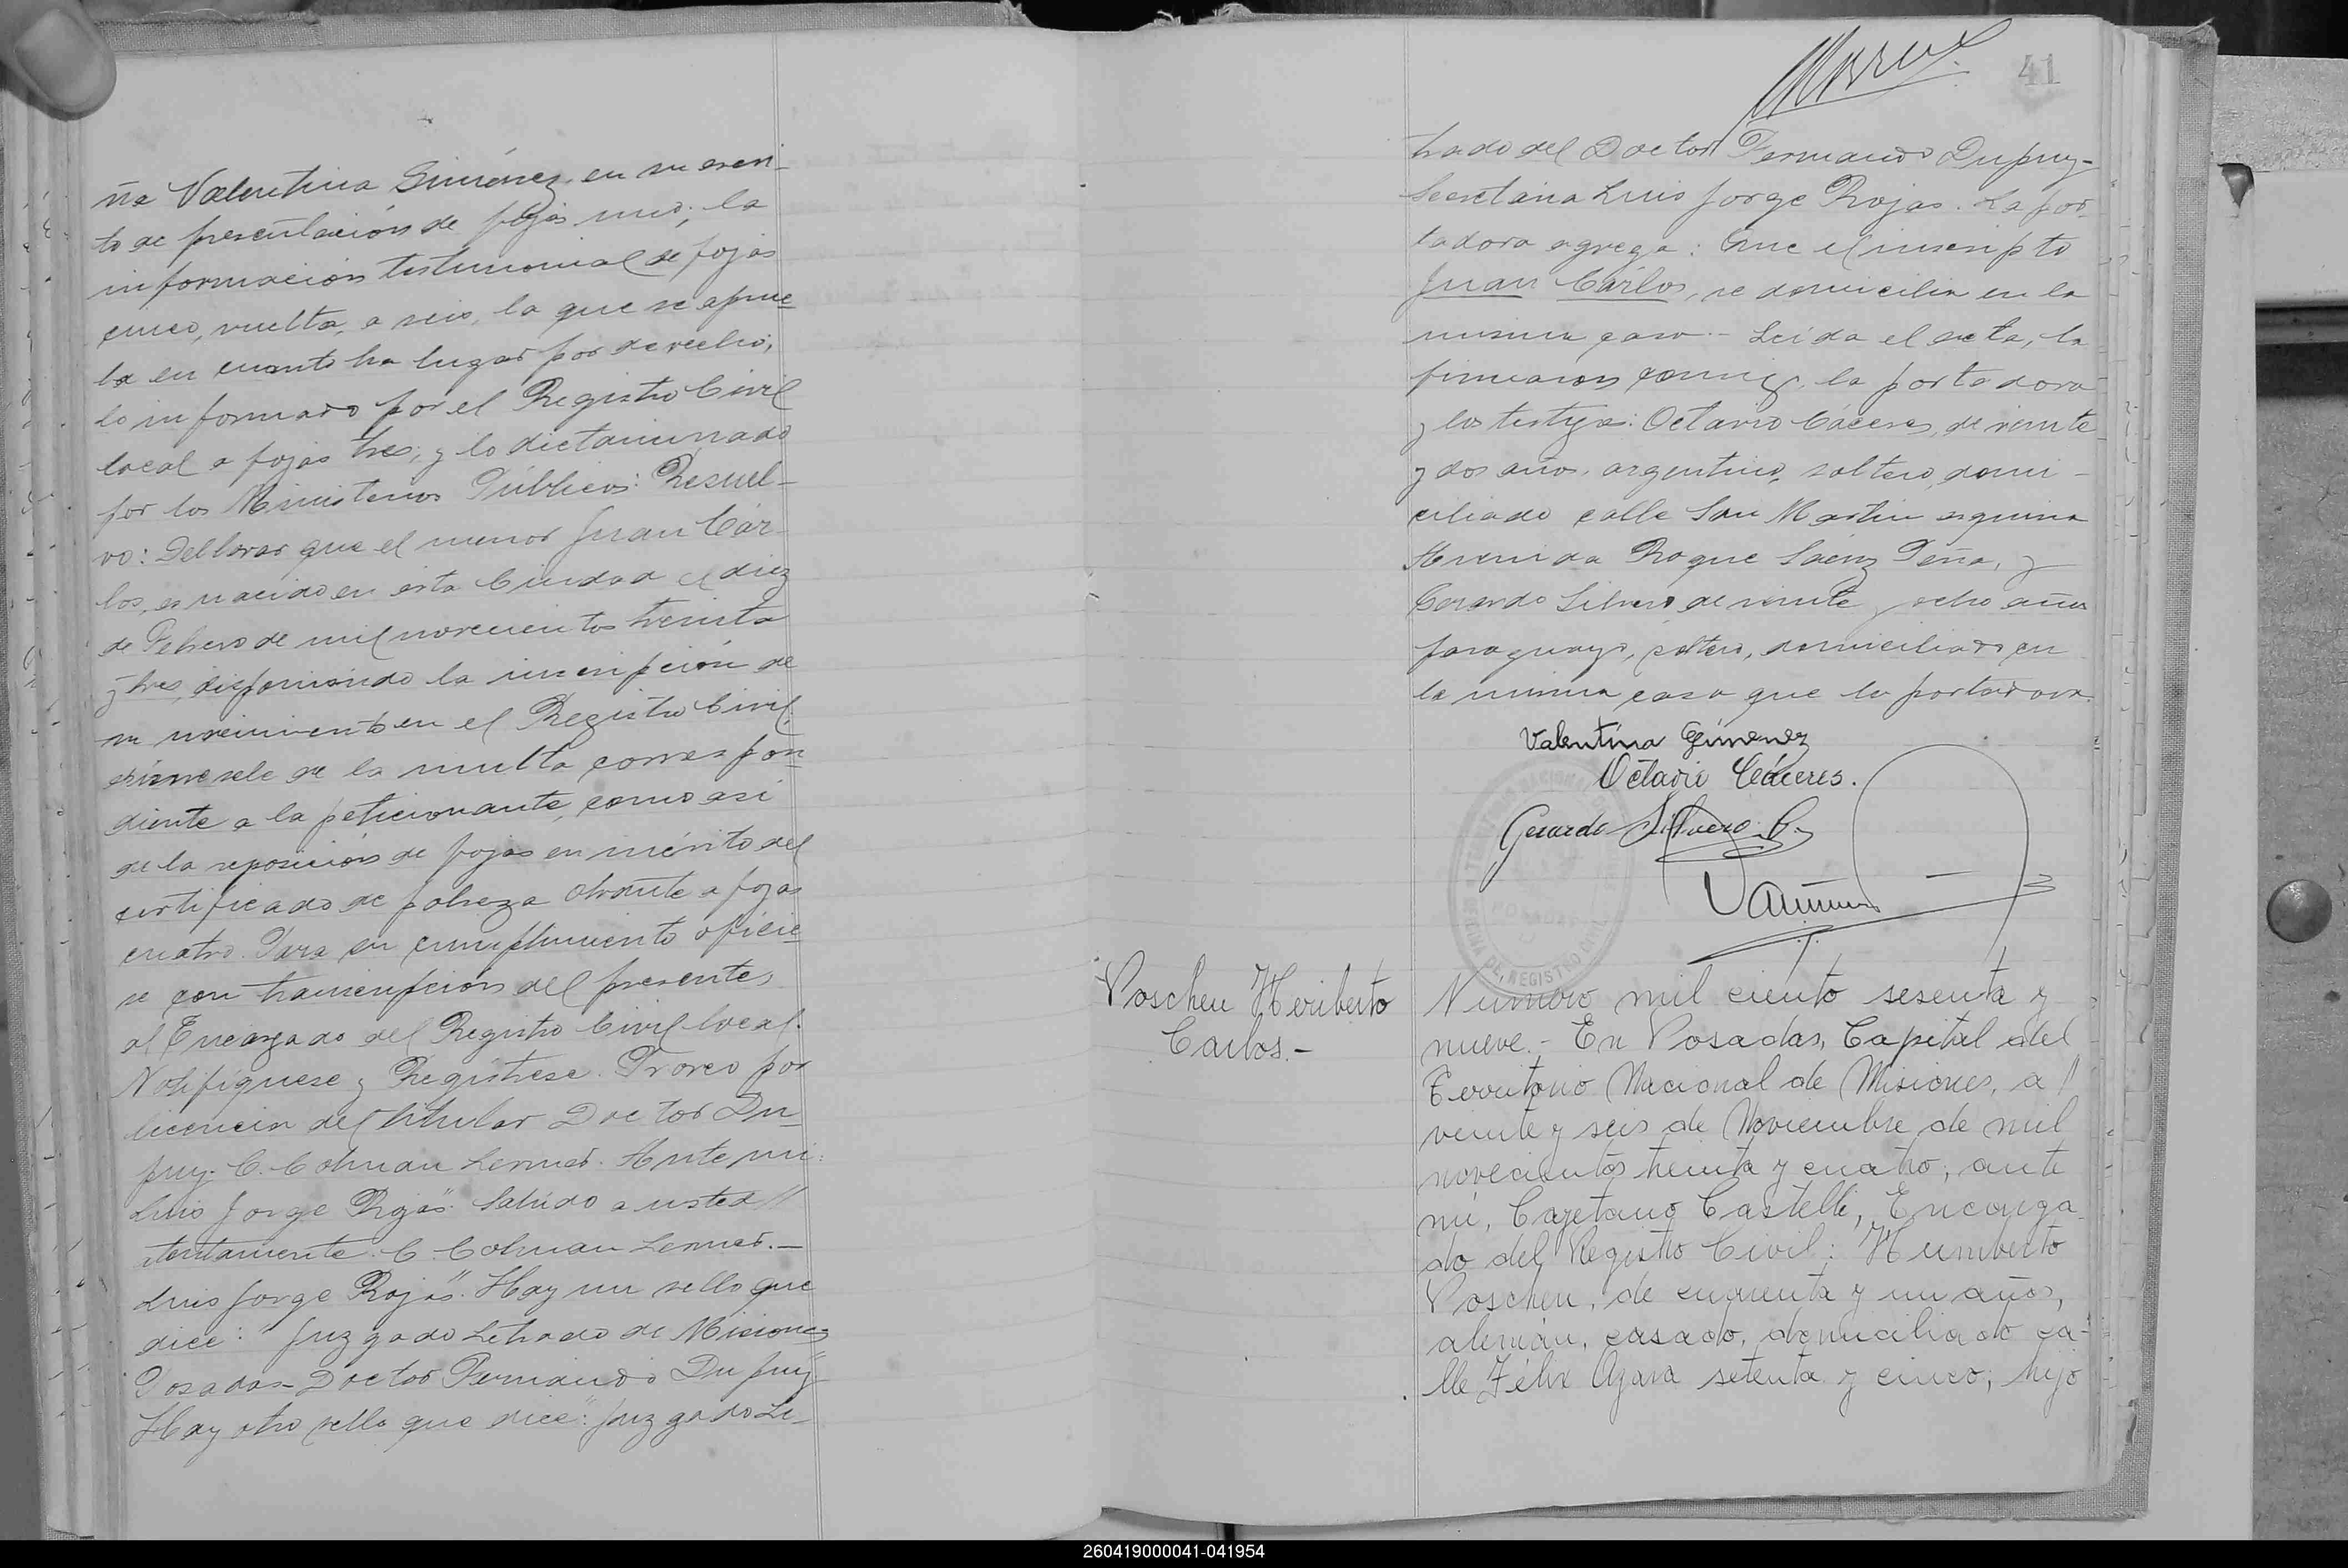 ña Valentina Giménez, en su escri-
to de presentación de fojas uno; la
información testimonial de fojas
cinco, vuelta, a seis, la que se aprue-
ba en cuanto ha lugar por derecho;
lo informado por el Registro Civil
local a fojas tres; y lo dictaminado
por los Ministerios Públicos: Resuel-
vo: Dellarar que el menor Juan Cár-
los, es nacido en ésta Ciudad el diez
de Febrero de mil novecientos treinta
y tres, disponiendo la inscripción de
su nacimiento en el Registro Civil;
exímesele de la multa correspon-
diente a la peticionante, como así
de la reposición de fojas en mérito del
certificado de pobreza obrante a fojas
cuatro. Para su cumplimiento ofície-
se con transcripción del presente,
al Encargado del Registro Civil local.
Notifíquese y Regístrese. Proveo por
licencia del titular Doctor Du-
puy. C. Colman Lerner. Ante mi:
Luis Jorge Rojas". Saludo a usted //
atentamente. C. Colman Lerner.-
Luis Jorge Rojas". Hay un sello que
dice: "Juzgado Letrado de Misiones
Posadas- Doctor Fernando Dupuy"
Hay otro sello que dice": Juzgado Le-
41
trado del Doctor Fernando Dupuy-
Secretaria Luis Jorge Rojas. La por-
tadora agrega: Que el inscripto
Juan Cárlos, se domicilia en la
misma casa.- Leída el acta, la
firmaron conmigo, la portadora
y los testigos: Octavio Cáceres, de veinte
y dos años, argentino, soltero, domi-
ciliado calle San Martin esquina
Avenida Roque Sáenz Peña, y
Gerardo Silvero, de veinte y ocho años
paraguayo, soltero, domiciliado en
la misma casa que la portadora.
Valentina Gimenez
Octavio Cáceres.
Gerardo Silvero G.
POSADAS
REGISTRO CIVIL
Poschen Heriberto
Carlos.-
Número mil ciento sesenta y
nueve.- En Posadas, Capital del
Territorio Nacional de Misiones, a //
veinte y seis de Noviembre de mil
novecientos treinta y cuatro, ante
mí, Cayetano Castelli, Encarga-
do del Registro Civil: Humberto
Poschen, de cuarenta y un años,
alemán, casado, domiciliado ca-
lle Félix Azara setenta y cinco, hijo
260419000041-041954